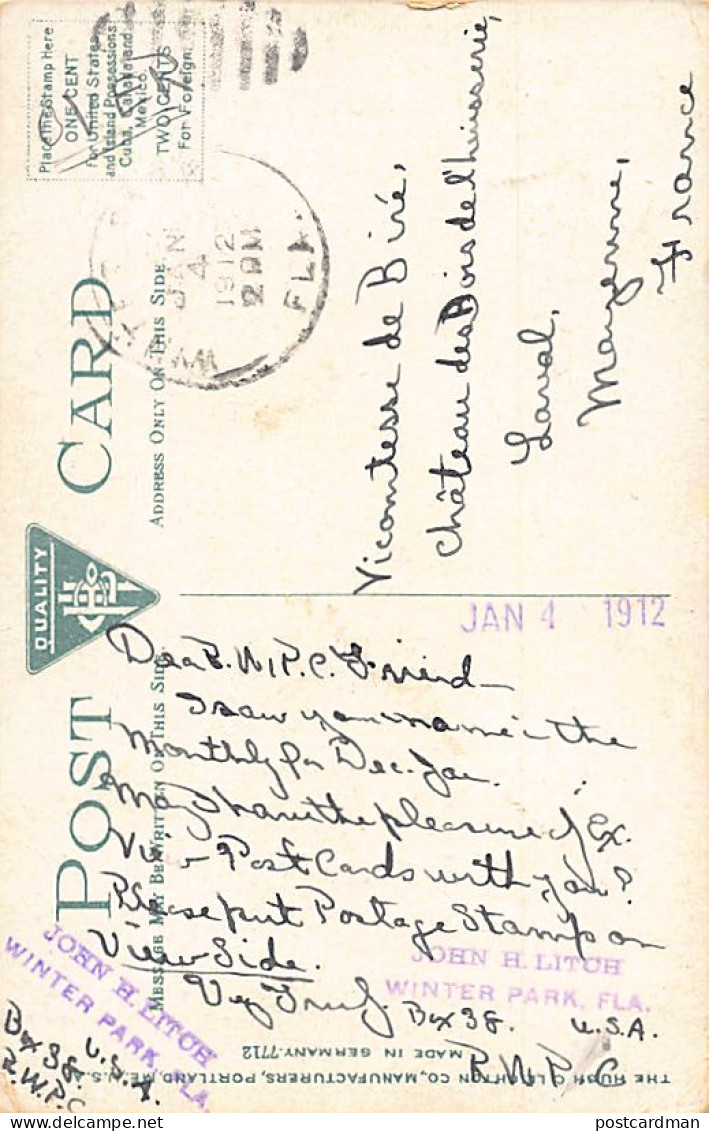 POST CARD
QUALITY
MESSAGE MAY BE WRITTEN ON THIS SIDE.
ADDRESS ONLY ON THIS SIDE.
Place the Stamp Here
ONE CENT
For United States
and Island Possessions
Cuba, Canada and
Mexico.
TWO CENTS
For Foreign.
JAN
4
1912
2 PM
FLA.
Dear B.
P. C. Friend—
I saw your name in the
Monthly for Dec. Jan.
May I have the pleasure of Ex.
View Post Cards with you?
Please put Postage Stamp on
View Side.
Very Truly
JOHN H. LITCH
WINTER PARK, FLA.
Box 38. U.S.A.
R.W.P.C
JOHN H. LITCH
WINTER PARK, FLA.
Box 38 U.S.A.
R.W.P.C
JAN 4 1912
Vicomtesse de Biré,
Château des Bois de l'huisserie,
Laval,
Mayenne,
France
THE HUGH C. LEIGHTON CO., MANUFACTURERS, PORTLAND, ME., U.S.A.
MADE IN GERMANY. 7712
postcardman